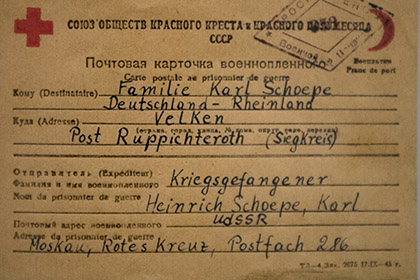 СОЮЗ ОБЩЕСТВ КРАСНОГО КРЕСТА и КРАСНОГО ПОЛУМЕСЯЦА
СССР
Почтовая карточка военнопленного
Бесплатно
Carte postale au prisonnier de guerre
Franc de port
Кому (Destinataire) Familie Karl Schoepe
Deutschland - Rheinland
Куда (Adresse) Velken
(страна, город, улица, № дома, округ, село, деревня)
Post Ruppichteroth (Siegkreis)
Отправитель (Expéditeur)
Фамилия и имя военнопленного Kriegsgefangener
Nom du prisonnier de guerre Heinrich Schoepe, Karl
Почтовый адрес военнопленного UdSSR
Adresse du prisonnier de guerre
Moskau, Rotes Kreuz, Postfach 286